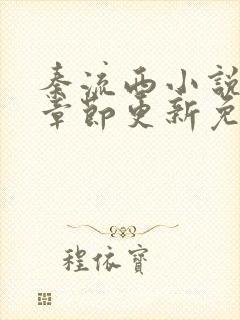 秦流西小說
章節更新免
程依寶